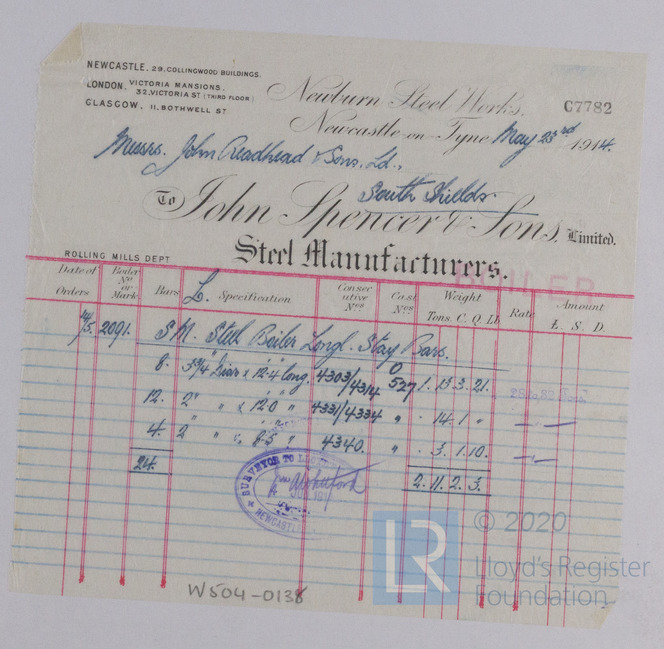 NEWCASTLE. 29. COLLINGWOOD BUILDINGS.
LONDON. VICTORIA MANSIONS. 32, VICTORIA ST (THIRD FLOOR)
GLASGOW. 11. BOTHWELL ST
Newburn Steel Works.
C7782
Newcastle-on-Tyne May 23rd 1914.
Messrs. John Readhead & Sons. Ld.,
South Shields
To John Spencer & Sons, Limited.
Steel Manufacturers.
ROLLING MILLS DEPT
BOILER
Date of Orders Boiler No or Mark Bars L. Specification Consecutive Nos Cast Nos Weight Tons. C. Q. Lb Rate Amount £. S. D.
14/5. 2091. S.M. Steel Boiler Longl. Stay Bars.
8. 3 3/4" Diar x 12.4 long. 4303/4314 527 1. 13. 3. 21.
12. 2" " x 12.0 " 4331/4334 " . 14. 1 "
4. 2 " 8.5 " 4340. " . 3. 1. 10.
24. 2. 11. 2. 3.
SURVEYOR TO
NEWCASTLE
W504-0138
LR
© 2020
Lloyd's Register
Foundation